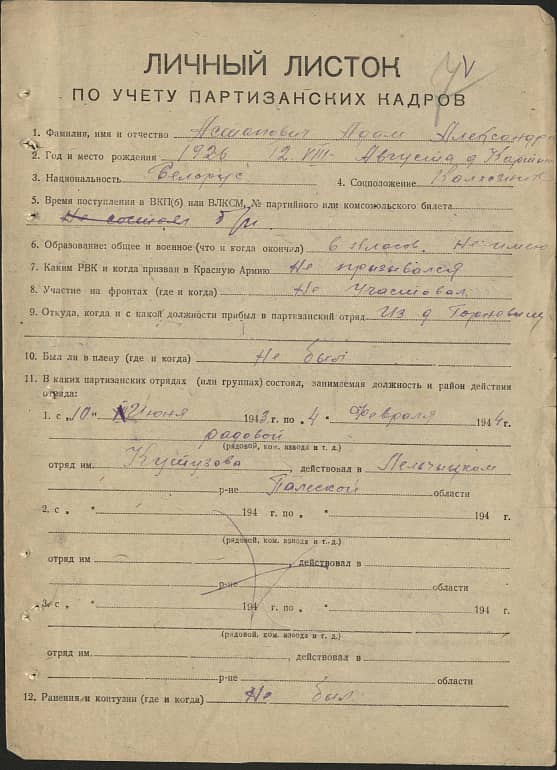 ЛИЧНЫЙ ЛИСТОК
ПО УЧЕТУ ПАРТИЗАНСКИХ КАДРОВ
1. Фамилия, имя и отчество Асманович Адам Александр
2. Год и место рождения 1926 12.VIII- Августа д
3. Национальность Белорус 4. Соцположение
5. Время поступления в ВКП(б) или ВЛКСМ, № партийного или комсомольского билета
Не состоял б/п
6. Образование: общее и военное (что и когда окончил) 6 класов. Не имею
7. Каким РВК и когда призван в Красную Армию Не призывался
8. Участие на фронтах (где и когда) Не участвовал
9. Откуда, когда и с какой должности прибыл в партизанский отряд Из д
10. Был ли в плену (где и когда) Не был
11. В каких партизанских отрядах (или группах) состоял, занимаемая должность и район действия
отряда:
1. с „10" Июня 1943 г. по „4 " Февраля 1944 г.
радовой
(рядовой, ком. взвода и т. д.)
отряд им. Кутузова , действовал в Лельчыцком
р-не Палеской области
2. с „ " 194 г. по „ " 194 г.
(рядовой, ком. взвода и т. д.)
отряд им , действовал в
р-не области
3. с „ " 194 г. по „ " 194 г.
(рядовой, ком. взвода и т. д.)
отряд им. , действовал в
р-не области
12. Ранения и контузии (где и когда) Не был